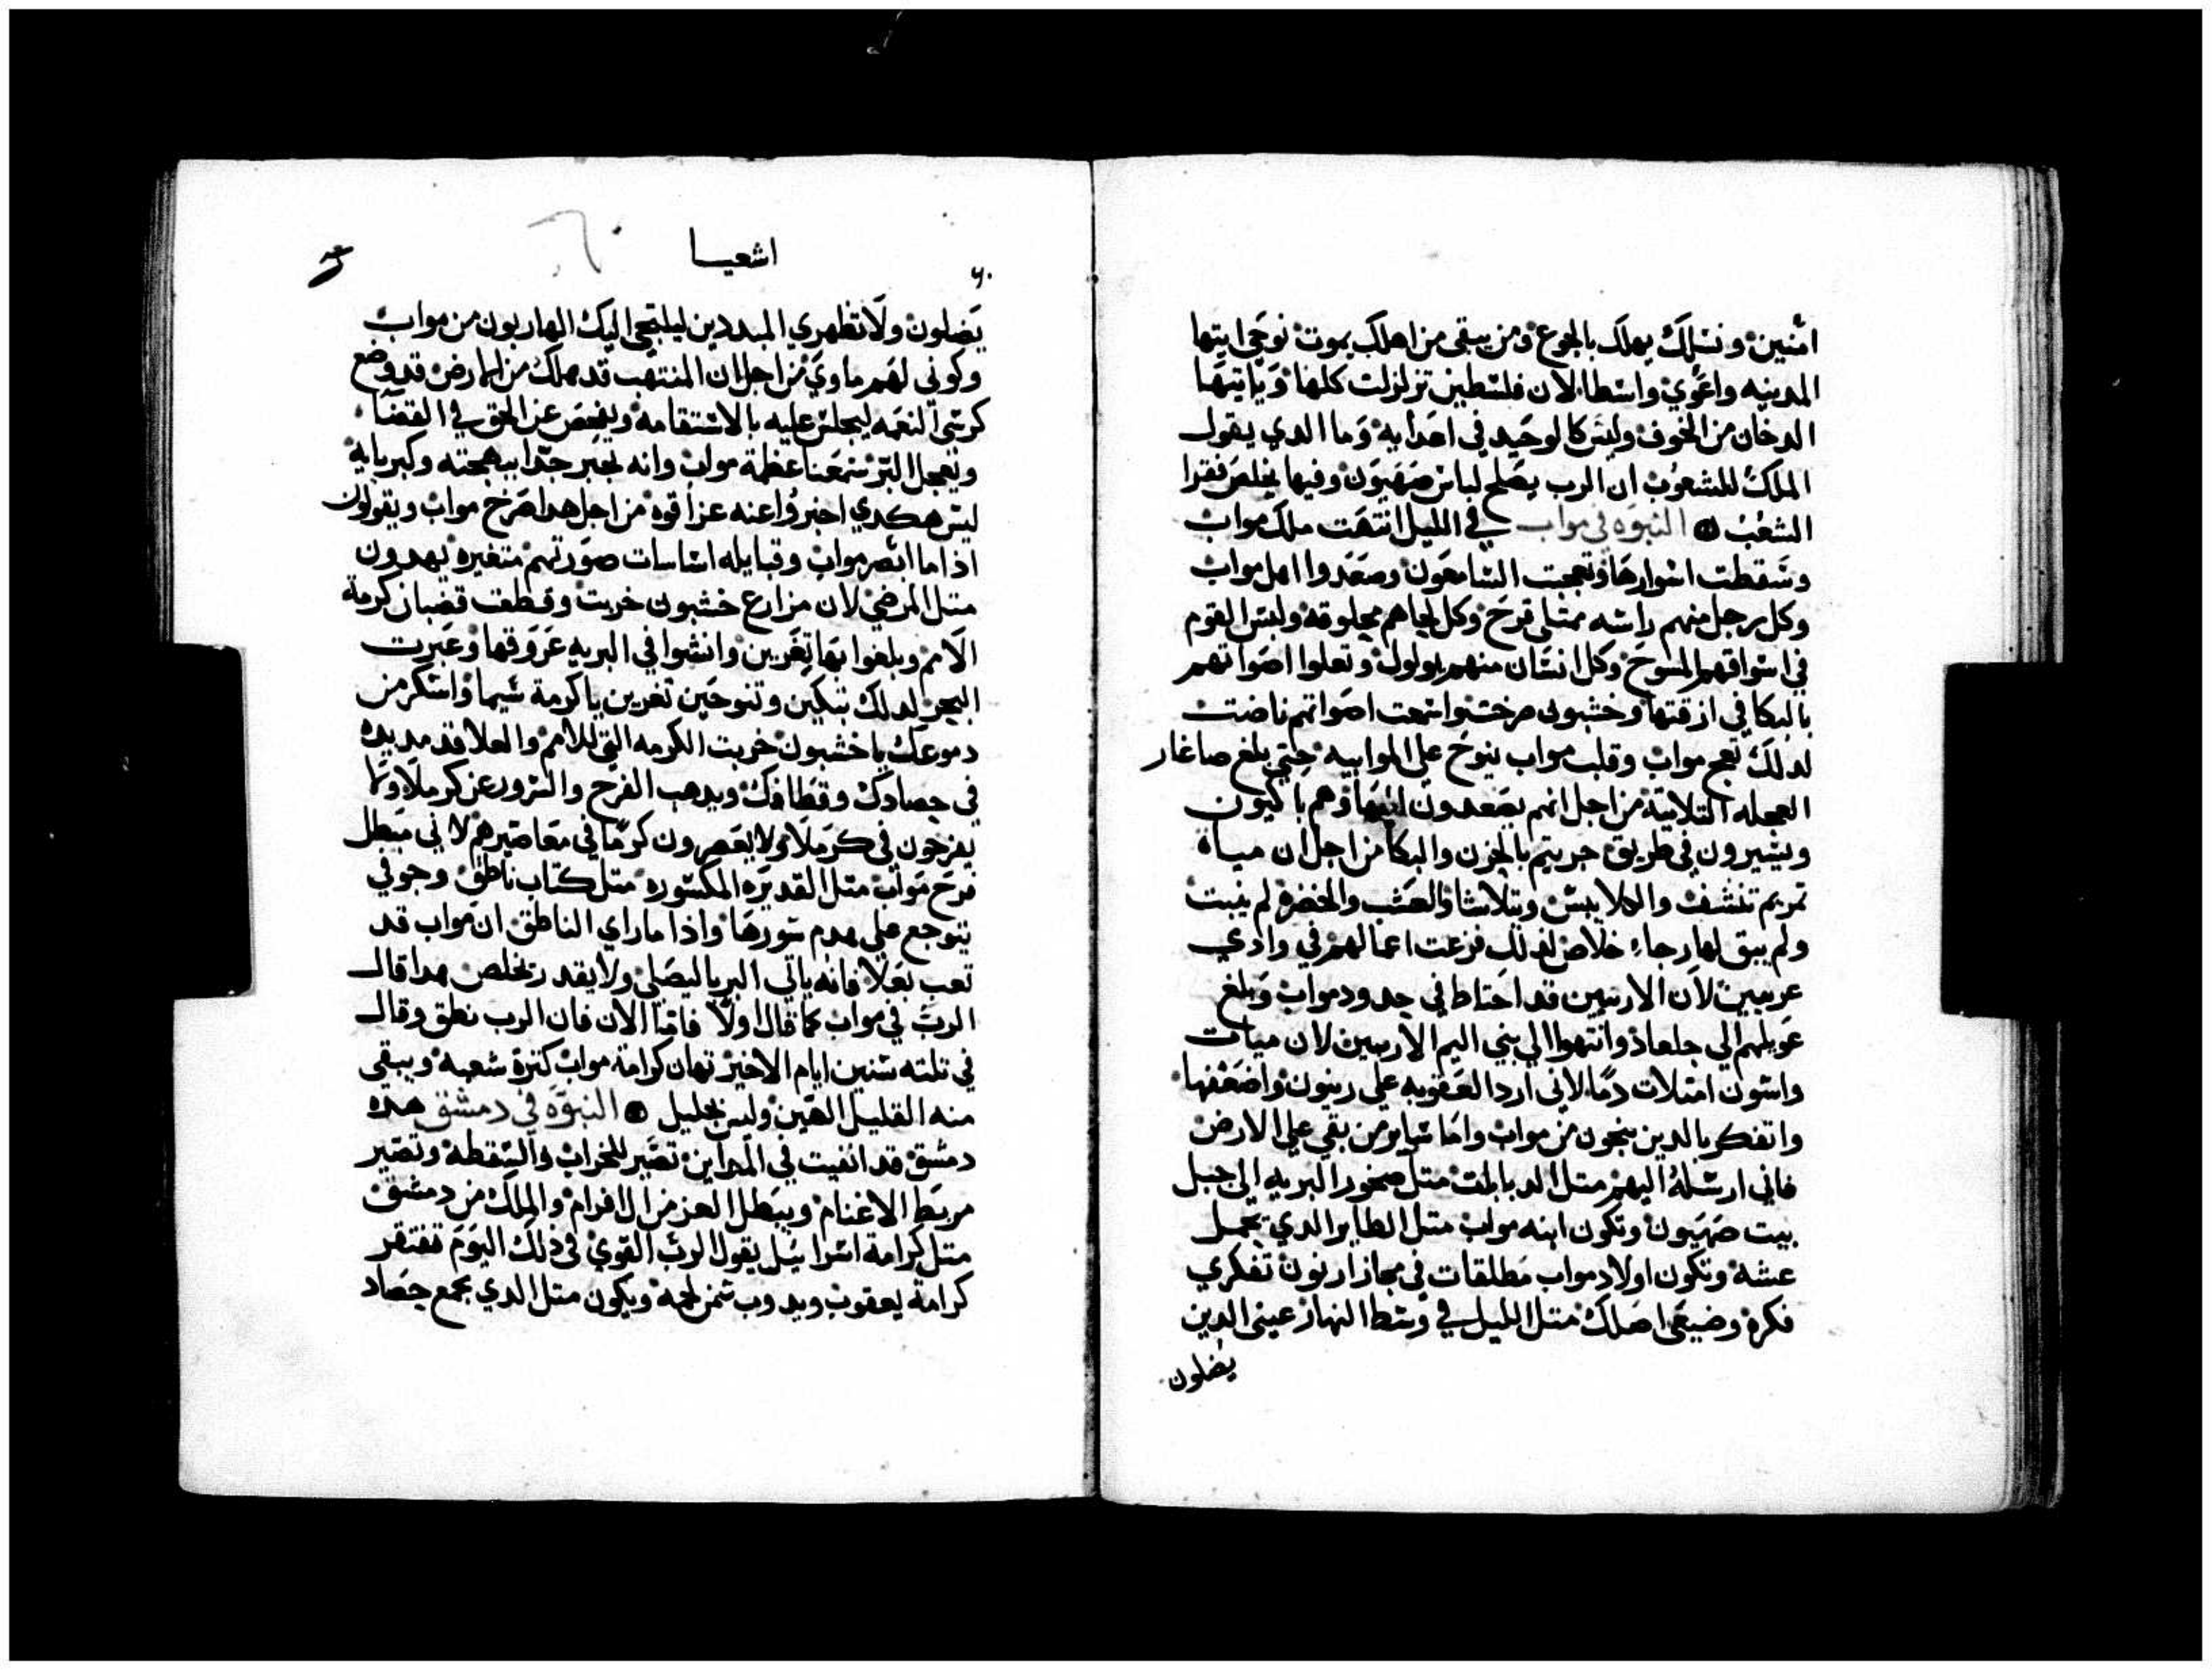 امنين ونسلك يهلك بالجوع ومن يبقى من اهلك يموت نوحي ايتها
المدينه واعوي واسطا الان فلسطين تزلزلت كلها وياتيها
الدخان من الخوف وليس كالوحيد في اعدايه وما الدي يقول
الملك للشعوب ان الرب يصلح لباس صهيون وفيها يخلص فقرا
الشعب النبوه في مواب في الليل انتهت ملك مواب
وسقطت اسوارها وتعجبت السامعون وصعدوا اهل مواب
وكل رجل منهم راسه ممتلي قرح وكل لحاهم محلوقه ولبس القوم
في اسواقهم المسوح وكل انسان منهم يولول وتعلوا اصواتهم
بالبكا في ازقتها وخشبون صرخت وانتهت اصواتهم ناضت
لدلك تعج مواب وقلب مواب ينوح علي الموابيه حتي بلغ صاغار
العجله التلاتية من اجل انهم يصعدون اليها وهم باكيون
ويسيرون في طريق حرينم بالحزن والبكا من اجل ان مياه
تمريم تنشف والكلا يبس ويتلاشا والعشب والخضره لم ينبت
ولم يبق لها رجاء خلاص لدلك فزعت اعمالهم في وادي
عربيين لان الاربيين قد احتاط في حدود مواب وبلغ
عويلهم الي جلعاد وانتهوا الي بني اليم الاربيين لان مياه
واسون امتلات دما لاني اردا العقوبه علي رينون واضعفها
واتفكر بالدين ينجون من مواب واما ساير من بقي علي الارض
فاني ارسله اليهم متل الدبابات متل صخور البريه الي جبل
بيت صهيون وتكون ابنه مواب متل الطاير الدي يحمل
عشه وتكون اولاد مواب مطلقات في مجاز ارنون تفكري
فكره وضيعي اصلك متل الليل في وسط النهار عيني الدين
يضلون
اشعيا
يضلون ولا تظهري المبددين ليلتجي اليك الهاربون من مواب
وكوني لهم ماوي من اجل ان المنتهب قد هلك من الارض قد وضع
كرسي النعمه ليجلس عليه بالاستقامه ويفحص عن الحق في القضا
ويعجل البر سمعنا عظمة مواب وانه تجبر جدا ببهجته وكبريايه
ليس هكدي اخبروا عنه عزا قوه من اجل هدا صرخ مواب ويقولون
اذا ما ابصر مواب وقبايله اساسات صورتهم متغيره يهدون
متل المرضي لان مزارع خشبون خربت وقطعت قضبان كرمة
الامم وبلغوا بها تغريين وانشوا في البريه عروقها وعبرت
البحر لدلك تبكين وتنوحين تغرين يا كرمة شيما واسكر من
دموعك يا خشبون خربت الكرمه التي للامم والعلا قد مديده
في حصادك وقطافك ويدهب الفرح والسرور عن كرملا ولا
يفرحون في كرملا ولا يعصرون كرما في معاصيرهم لاني مبطل
فرح مواب متل القديره المكسوره متل كتاب ناطق وجوفي
يتوجع علي هدم سورها واذا ما راي الناطق ان مواب قد
تعب بعلا فانه ياتي البر باليصلي ولا يقدر يخلص هدا قال
الرب في مواب كما قال اولا فاما الان فان الرب نطق وقال
في تلته سنين ايام الاخير تهان كرامة مواب كترة شعبه ويبقى
منه القليل الهين وليس بجليل النبوه في دمشق هده
دمشق قد انفيت في المداين تصير للخراب والسقطه وتصير
مربط الاغنام ويبطل العز من الافرام والملك من دمشق
متل كرامة اسراييل يقول الرب القوي في ذلك اليوم تفتقر
كرامة يعقوب ويدوب سمن لحمه ويكون متل الدي يجمع حصاد